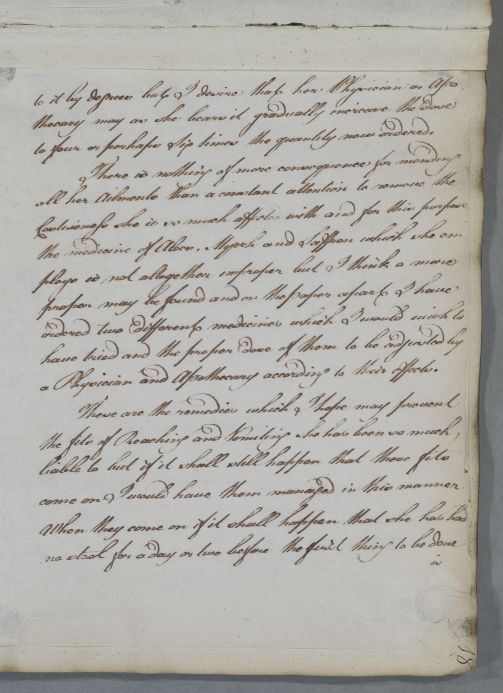 to it by degrees but I desire that her Physician or Apo
thecary may as she bears it gradually increase the dose
to four or perhaps Six times the quantity now ordered.
There is nothing of more consequence for mending
all her Ailments than a constant attention to remove the
Costiveness she is so much affected with and for this purpose
the medicine of Aloes, Myrrh and Saffron which she em
ploys is not altogether improper but I think a more
proper may be found and on the paper apart I have
ordered two different medicines which I would wish to
have tried and the proper dose of them to be adjusted by
a Physician and Apothecary according to their effects.
These are the remedies which I hope may prevent
the fits of Reaching and Vomiting she has been so much
liable to but if it shall still happen that these fits
come on I would have them managed in this manner
When they come on if it shall happen that she has had
no stool for a day or two before the first thing to be done
is
18